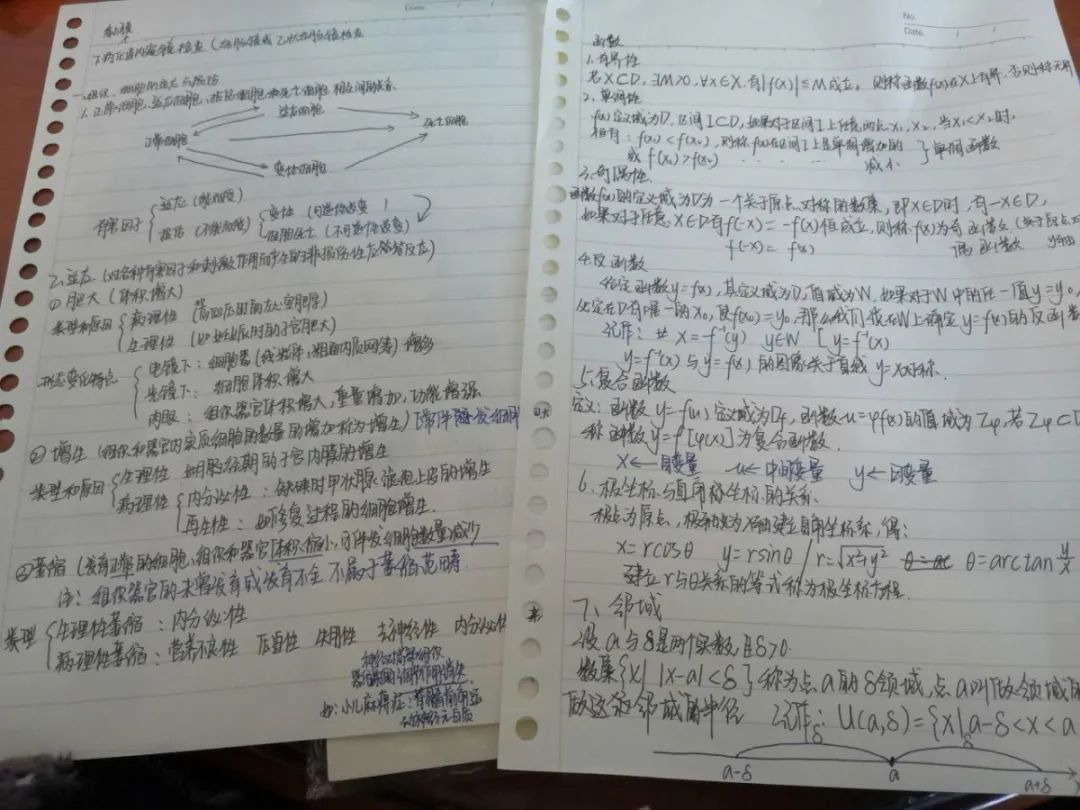 一、组织、细胞的适应与损伤
1.正常细胞、适应细胞、损伤细胞和死亡细胞 相互间的关系.
适应细胞
正常细胞
死亡细胞
变性细胞
有害因子
适应 (能耐受)
损伤 (不能耐受)
变性 (可逆性改变)
细胞死亡 (不可逆性改变)
2.适应 (对各种有害因子和刺激作用而产生的非损伤性应答反应)
① 肥大 (体积增大)
类型和原因
病理性 (高血压时的左心室肥厚)
生理性 (如妊娠时的子宫肥大)
形态变化特点
电镜下：细胞器 (线粒体、粗面内质网等) 增多
光镜下：细胞体积增大
肉眼：组织器官体积增大，重量增加，功能增强
② 增生 (组织和器官内实质细胞的数量的增加称为增生) [常伴随发细胞
类型和原因
生理性 如月经期的子宫内膜的增生
病理性
内分泌性：缺碘时甲状腺滤泡上皮的增生
再生性：如修复过程的细胞增生.
③萎缩 (发育正常的细胞、组织和器官体积缩小，可伴发细胞数量减少
注：组织器官的未曾发育或发育不全 不属于萎缩范畴.
类型
生理性萎缩：内分泌性
病理性萎缩：营养不良性 压迫性 失用性 去神经性 内分泌性
如：小儿麻痹症：脊髓前角运
动神经元白质
No.
Date.
函数
1.有界性
若X⊂D, ∃M>0, ∀x∈X, 有|f(x)|≤M成立，则称函数f(x)在X上有界，否则称无界
2.单调性
f(x)定义域为D, 区间I⊂D, 如果对于区间I上任意两点x₁, x₂, 当x₁<x₂时,
恒有：f(x₁)<f(x₂), 则称f(x)在区间I上是单调增加的 } 单调函数
或 f(x₁)>f(x₂) 减小
3.奇偶性.
函数f(x)的定义域为D为一个关于原点对称的数集，即x∈D时，有-x∈D,
如果对于任意x∈D有f(-x)=-f(x)恒成立，则称f(x)为奇函数 (关于原点对
f(-x)=f(x) 偶函数 y轴
4.反函数
给定函数y=f(x), 其定义域为D, 值域为W. 如果对于W中的任一值y=y₀,
必定在D有唯一的x₀, 使f(x₀)=y₀, 那么我们说在W上确定y=f(x)的反函数
记作： x=f⁻¹(y) y∈W [y=f⁻¹(x)
y=f⁻¹(x) 与 y=f(x) 的图像关于直线 y=x对称.
5.复合函数
定义：函数 y=f(u) 定义域为Df, 函数u=φ(x)的值域为Zφ, 若Zφ⊂D
称函数y=f[φ(x)]为复合函数.
x←自变量 u←中间变量 y←因变量
6.极坐标与直角坐标的关系.
极点为原点，极轴为x轴建立直角坐标系，得：
x=rcosθ y=rsinθ / r=√x²+y² θ=arctan y/x
建立r与θ关系的等式称为极坐标方程.
7、邻域
设a与δ是两个实数，且δ>0.
数集{x| |x-a|<δ}称为点a的δ领域，点a叫做领域的
做这个邻域的半径 记作：U(a,δ)={x|a-δ<x<a
δ δ
a-δ a a+δ